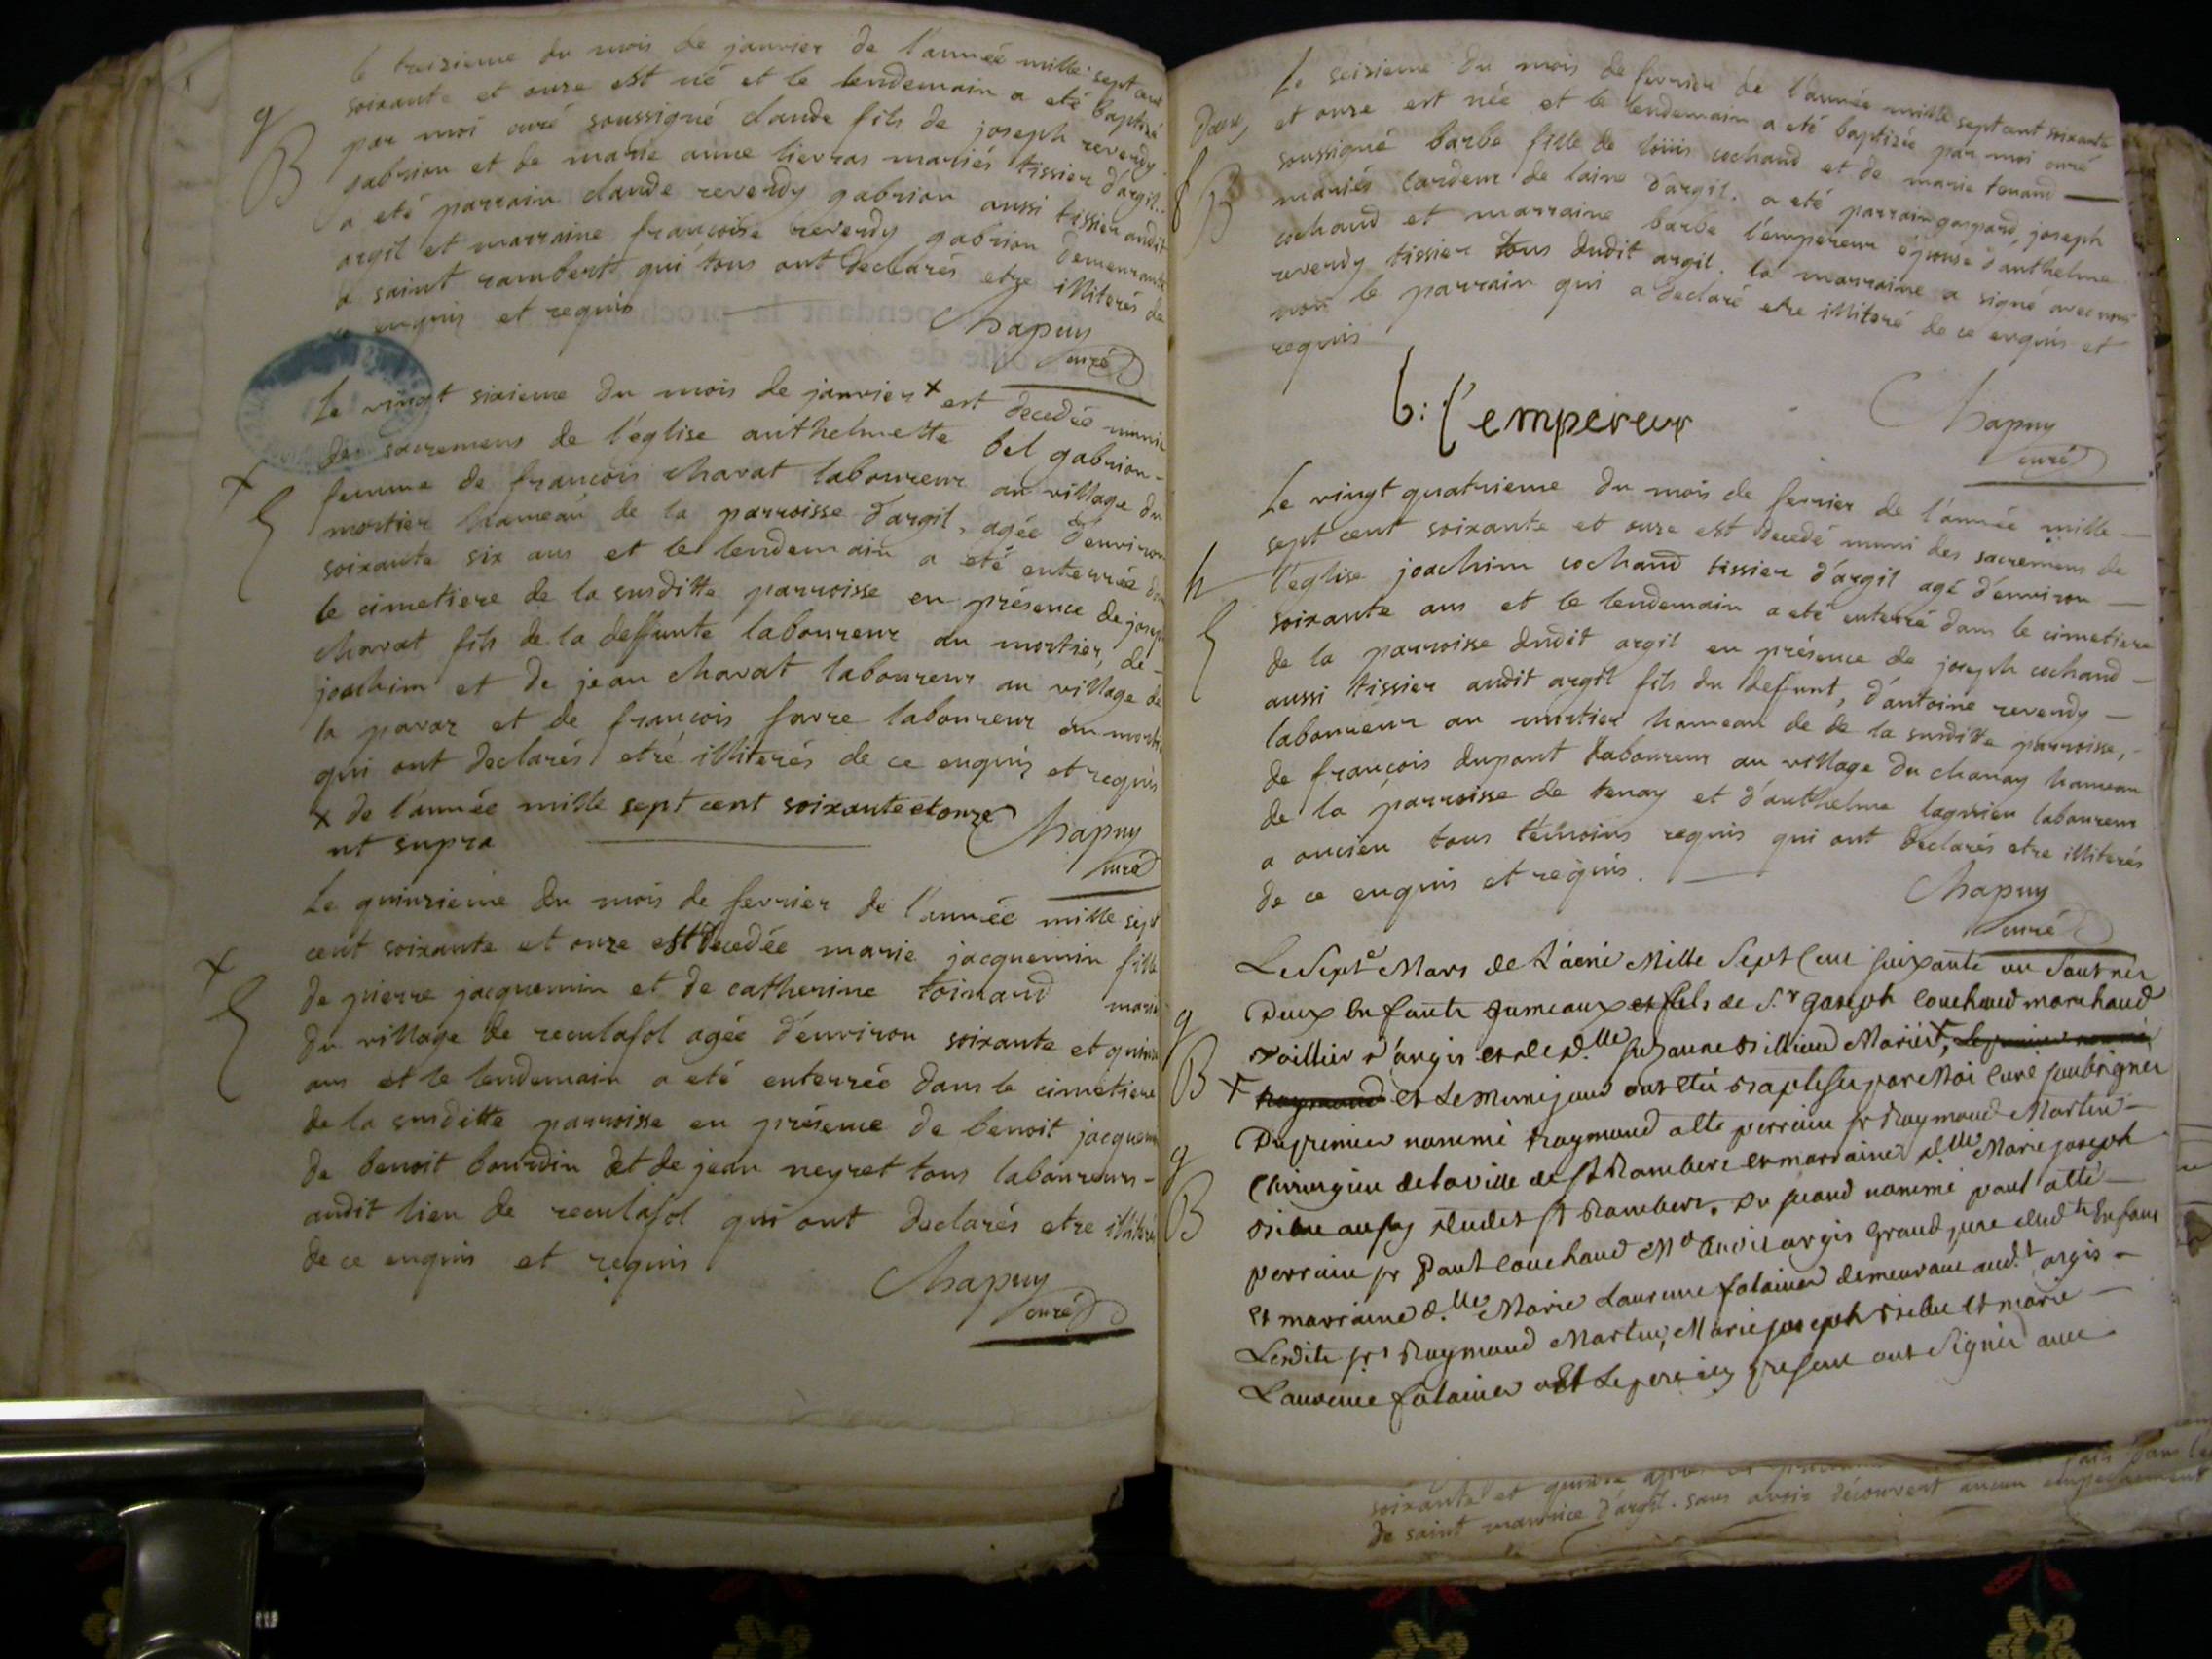 le treizieme du mois de janvier de l'année mille sept cent
soixante et onze est né et le lendemain a eté baptizé
g
par moi curé soussigné claude fils de joseph reverdy
B
gabrion et de marie anne lierras mariés tissier d'argil.
a eté parrain claude reverdy gabrion aussi tissier audit
argil et marraine françoise reverdy gabrion demeurante
a saint rambert qui tous ont declarés etre illiterés de
ce enquis et requis
Chapuy
curé
Le vingt sixieme du mois de janvier x est decedée munie
des sacremens de l'église anthelmette bel gabrion -
x
femme de françois charat laboureur au village du
mortier hameau de la parroisse d'argil, agée d'environ
soixante six ans et le lendemain a eté enterrée dans
le cimetiere de la susditte parroisse en présence de joseph
charat fils de la deffunte laboureur au mortier, de -
joachim et de jean charat laboureur au village de
la pavaz et de françois favre laboureur au mortier
qui ont declarés etre illiterés de ce enquis et requis
x de l'année mille sept cent soixante et onze
ut supra
Chapuy
curé
Le quinzieme du mois de fevrier de l'année mille sept
cent soixante et onze est decedée marie jacquemin fille
x
de pierre jacquemin et de catherine toinard mariés
du village de reculafol agée d'environ soixante et quinze
ans et le lendemain a eté enterrée dans le cimetiere
de la susditte parroisse en présence de benoit jacquemin
de benoit bourdin et de jean neyret tous laboureurs -
audit lieu de reculafol qui ont declarés etre illiterés
de ce enquis et requis
Chapuy
curé
Le seizieme du mois de fevrier de l'année mille sept cent soixante
et onze est née et le lendemain a eté baptizée par moi curé
soussigné barbe fille de loüis cochand et de marie tenand
f
B
mariés cardeur de laine d'argil. a eté parrain gaspard joseph
cochand et marraine barbe l'empereur épouse d'anthelme
reverdy tissier tous dudit argil. la marraine a signé avec nous
non le parrain qui a declaré etre illiteré de ce enquis et
requis
b: l'empereur
Chapuy
curé
Le vingt quatrieme du mois de fevrier de l'année mille -
sept cent soixante et onze est decedé muni des sacremens de
h
l'église joachim cochand tissier d'argil agé d'environ -
soixante ans et le lendemain a eté enterré dans le cimetiere
de la parroisse dudit argil en présence de joseph cochand -
aussi tissier audit argil fils du defunt, d'antoine reverdy -
laboureur au mortier hameau de de la susditte parroisse, -
de françois dupont laboureur au village du chanay hameau
de la parroisse de tenay et d'anthelme lagnieu laboureur
a oncieu tous témoins requis qui ont declarés etre illiterés
de ce enquis et requis.
Chapuy
curé
Le Septe Mars de L'aéné Mille Sept Cent soixante un sont nés
g
Deux Enfants Jumeaux et fils de Sr Joseph Couchaud marchand
B
d'argis et de dlle Suzanne Mariés x,
x et Le meme jour ont été Baptisés par Moi Curé soubsigné
Du premier nommé Raymond atte perrain sr Raymond Martin -
g
Chirurgien de la ville de St Rambert et marraine dlle Marie joseph
B
aussy dudit St Rambert. Du second nommé paul atté -
perrain sr Paul Couchaud Md audit argis Grand pere dudt Enfant
Et marraine dlle Marie Laurence demeurant audt argis -
Lesdits srs Raymond Martin, Marie joseph Et marie -
Laurence Et Le pere icy present ont Signés avec
soixante et quinze
de saint maurice d'argil. sans avoir découvert aucun empechement